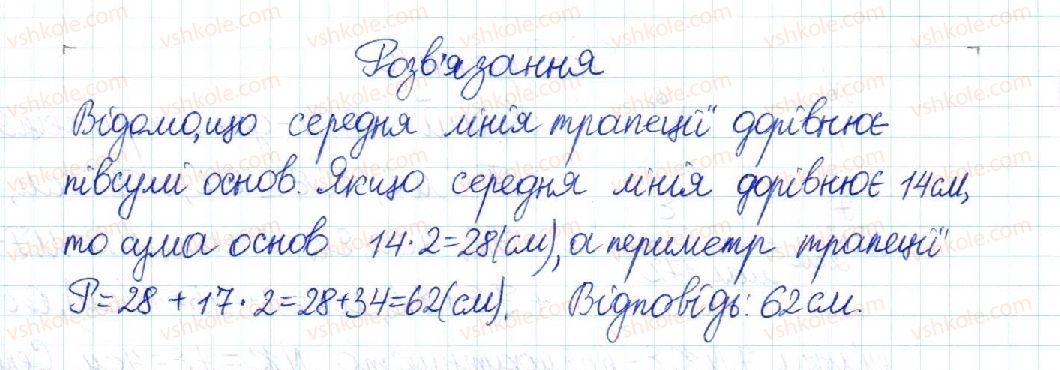 Розв'язання
Відомо, що середня лінія трапеції дорівнює
півсумі основ. Якщо середня лінія дорівнює 14 см,
то сума основ 14·2=28(см), а периметр трапеції
P=28+17·2=28+34=62(см). Відповідь: 62 см.